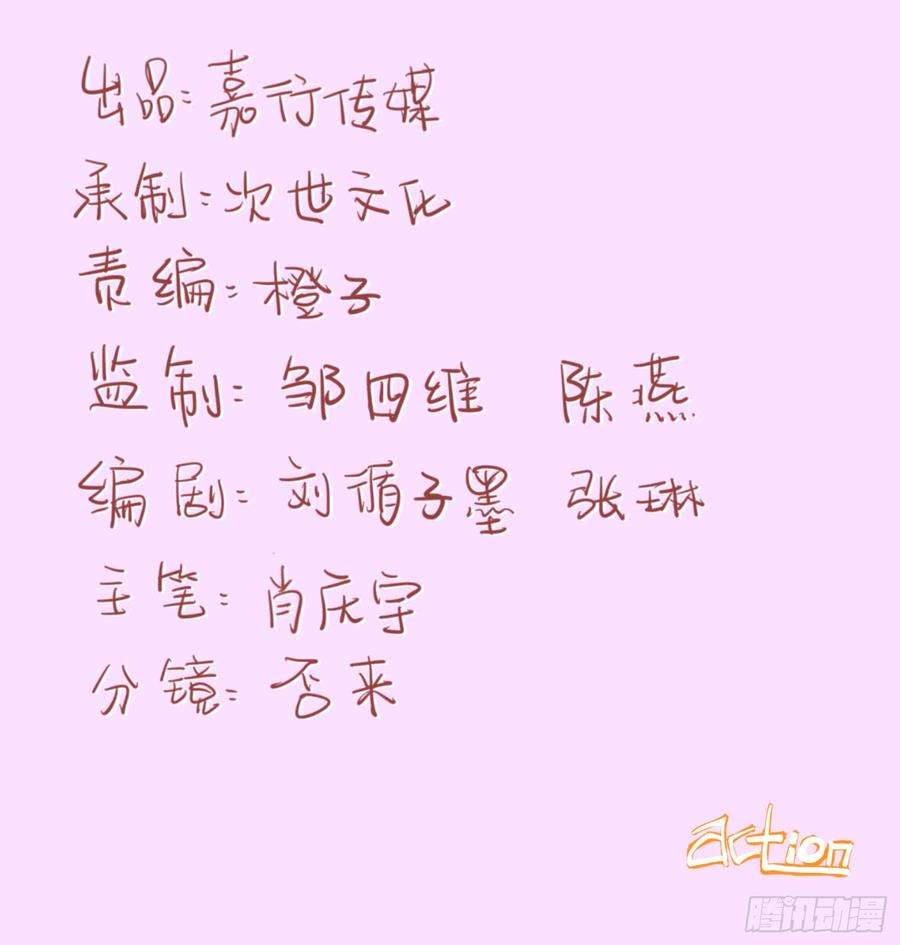 出品:嘉行传媒
承制:次世文化
责编:橙子
监制:邹四维 陈燕
编剧:刘循子墨 张琳
主笔:肖庆宇
分镜:否来
action
腾讯动漫